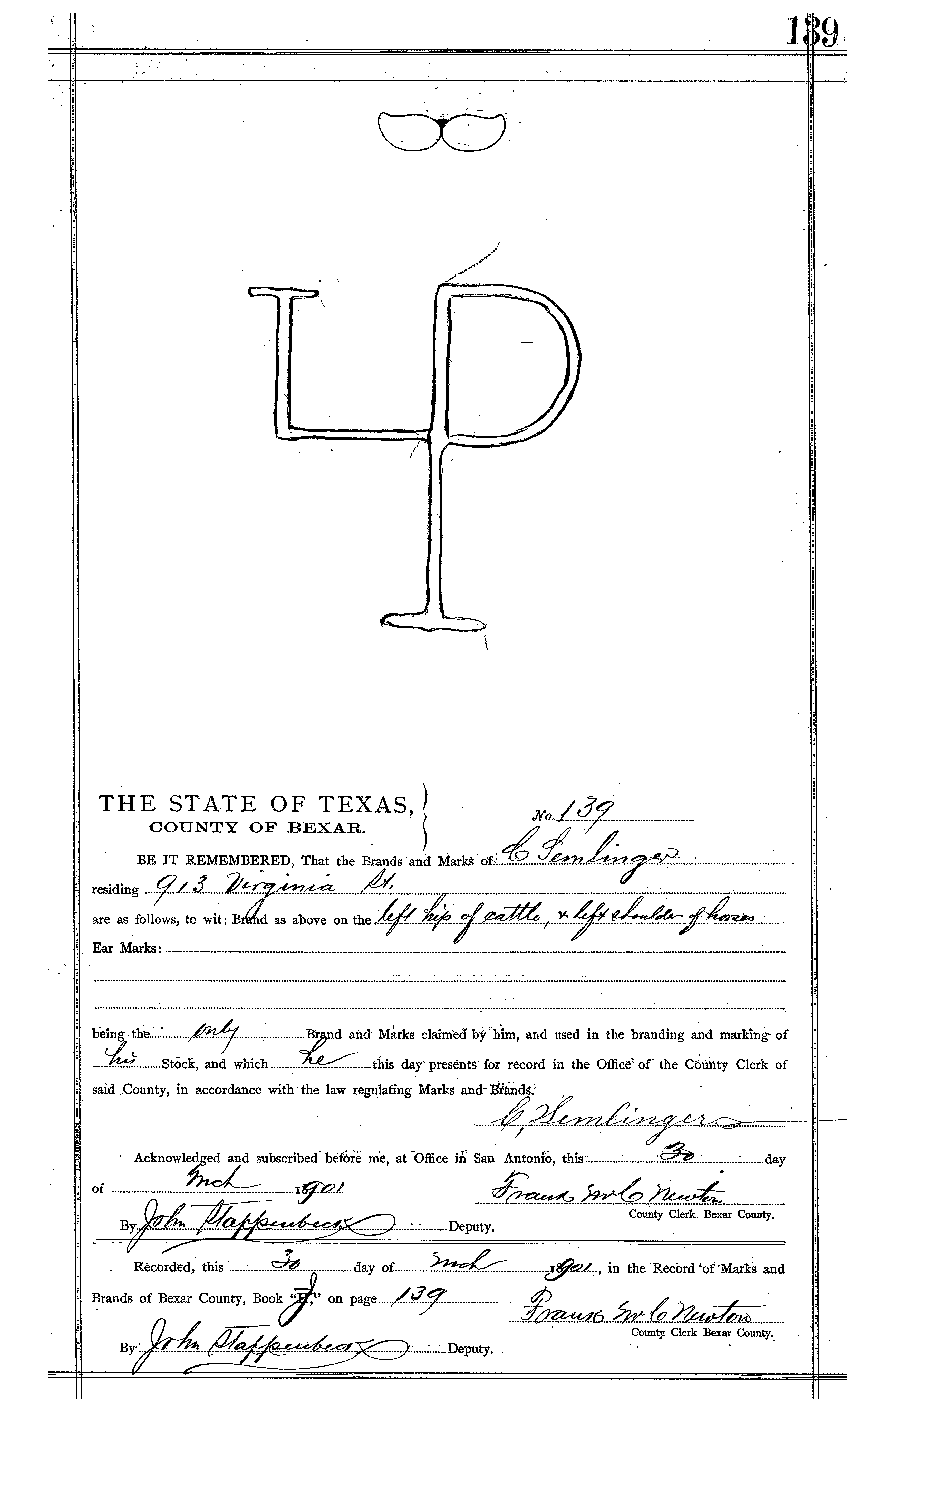 139
THE STATE OF TEXAS,
COUNTY OF BEXAR.
No. 139
BE IT REMEMBERED, That the Brands and Marks of C Semlinger
residing 913 Virginia St.
are as follows, to wit: Brand as above on the left hip of cattle, & left shoulder of horses
Ear Marks:
being the only Brand and Marks claimed by him, and used in the branding and marking of
his Stock, and which he this day presents for record in the Office of the County Clerk of
said County, in accordance with the law regulating Marks and Brands.
C, Semlinger
Acknowledged and subscribed before me, at Office in San Antonio, this 30 day
of Mch 1901 Frank McC Newton
County Clerk. Bexar County.
By John Stappenbeck Deputy.
Recorded, this 30 day of Mch 1901, in the Record of Marks and
Brands of Bexar County, Book "J," on page 139 Frank McC Newton
County Clerk Bexar County.
By John Stappenbeck Deputy.